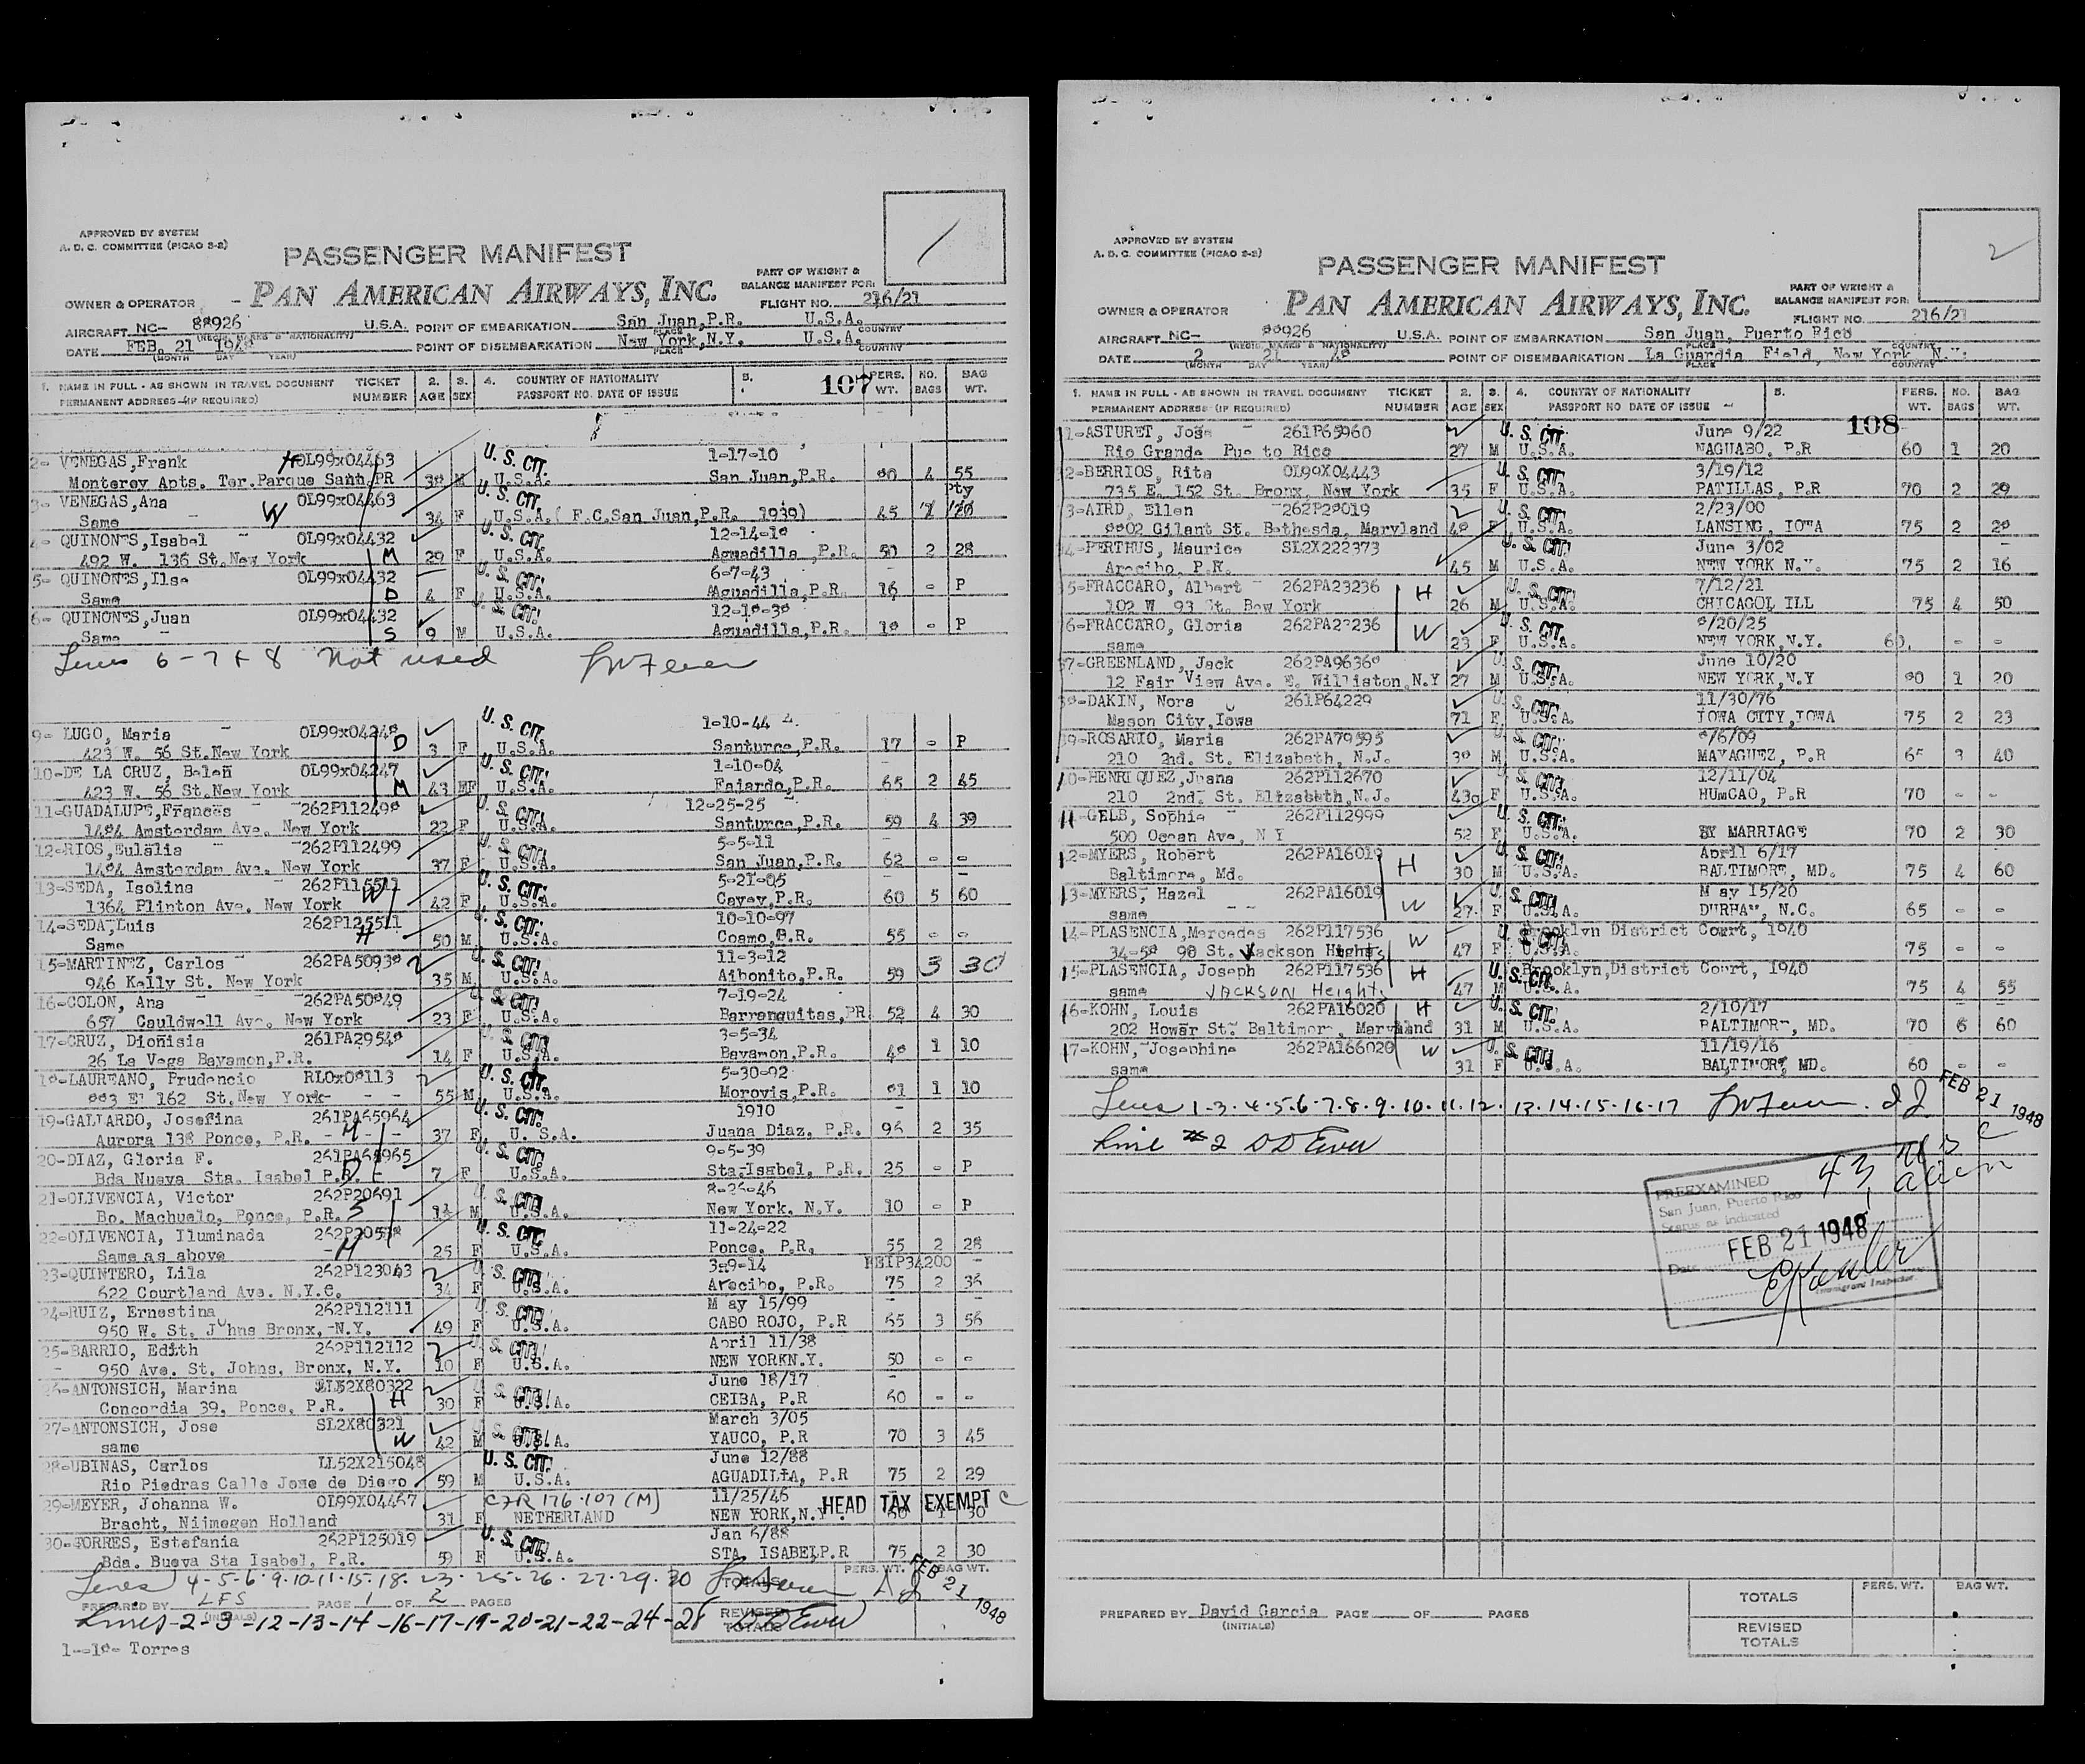 APPROVED BY SYSTEM
A. D. C. COMMITTEE (PICAO S-2)
PASSENGER MANIFEST
PAN AMERICAN AIRWAYS, INC.
PART OF WEIGHT &
BALANCE MANIFEST FOR:
OWNER & OPERATOR
FLIGHT NO. 216/21
AIRCRAFT NC- 88926 U.S.A. POINT OF EMBARKATION San Juan,P.R. U.S.A.
(REGIS. MARKS & NATIONALITY) PLACE COUNTRY
DATE FEB. 21 1948 POINT OF DISEMBARKATION New York,N.Y. U.S.A.
(MONTH DAY YEAR) PLACE COUNTRY
1. NAME IN FULL - AS SHOWN IN TRAVEL DOCUMENT TICKET 2. 3. 4. COUNTRY OF NATIONALITY 5. 107 PERS. NO. BAG
PERMANENT ADDRESS (IF REQUIRED) NUMBER AGE SEX PASSPORT NO. DATE OF ISSUE WT. BAGS WT.
2- VENEGAS,Frank H OL99x04463 U. S. CIT. 1-17-10
Monterey Apts. Ter.Parque Sant.PR 38 M U.S.A. San Juan,P.R. 80 4 55
3- VENEGAS,Ana W OL99x04463 U. S. CIT. Pty
Same 34 F U.S.A.( F.C.San Juan,P.R. 1939) 45
4- QUINONES,Isabel OL99x04432 U. S. CIT. 12-14-18
492 W. 136 St.New York M 29 F U.S.A. Aguadilla, P.R. 50 2 28
5- QUINONES,Ilse OL99x04432 U. S. CIT. 6-7-43
Same D 4 F U.S.A. Aguadilla,P.R. 16 - P
6- QUINONES,Juan OL99x04432 U. S. CIT. 12-18-38
Same S 9 M U.S.A. Aguadilla,P.R. 18 - P
Lines 6-7 & 8 Not used
9- LUGO, Maria OL99x04248 U. S. CIT. 1-10-44
423 W. 56 St.New York D 3 F U.S.A. Santurce,P.R. 17 - P
10-DE LA CRUZ, Belen OL99x04247 U. S. CIT. 1-10-04
423 W. 56 St.New York M 43 F U.S.A. Fajardo,P.R. 65 2 45
11-GUADALUPE,Frances 262P112498 U. S. CIT. 12-25-25
1484 Amsterdam Ave. New York 22 F U.S.A. Santurce,P.R. 59 4 39
12-RIOS,Eulalia 262P112499 U. S. CIT. 5-5-11
1484 Amsterdam Ave. New York 37 F U.S.A. San Juan,P.R. 62 - -
13-SEDA, Isolina 262P115511 W U. S. CIT. 5-21-05
1364 Plinton Ave. New York 42 F U.S.A. Cayey,P.R. 60 5 60
14-SEDA,Luis 262P125511 U. S. CIT. 10-10-97
Same H 50 M U.S.A. Coamo,P.R. 55 - -
15-MARTINEZ, Carlos 262PA50938 U. S. CIT. 11-3-12
946 Kelly St. New York 35 M U.S.A. Aibonito,P.R. 59 3 30
16-COLON, Ana 262PA50849 U. S. CIT. 7-19-24
657 Cauldwell Ave. New York 23 F U.S.A. Barranquitas,PR 52 4 30
17-CRUZ, Dionisia 261PA29548 U. S. CIT. 3-5-34
26 La Vega Bayamon,P.R. 14 F U.S.A. Bayamon,P.R. 48 1 10
18-LAUREANO, Prudencio RL0x08113 U. S. CIT. 5-30-92
883 E 162 St.New York 55 M U.S.A. Morovis,P.R. 81 1 10
19-GALLARDO, Josefina 261PA65964 U. S. CIT. 1910
Aurora 138 Ponce, P.R. M 37 F U. S.A. Juana Diaz, P.R. 96 2 35
20-DIAZ, Gloria F. 261PA65965 U. S. CIT. 9-5-39
Bda Nueva Sta. Isabel P.R. D 7 F U.S.A. Sta-Isabel, P.R. 25 - P
21-OLIVENCIA, Victor 262P20691 U. S. CIT. 8-26-46
Bo. Machuelo, Ponce, P.R. S M U.S.A. New York, N.Y. 10 - P
22-OLIVENCIA, Iluminada U. S. CIT. 11-24-22
Same as above M 25 F U.S.A. Ponce, P.R. 55 2 28
23-QUINTERO, Lila 262P123043 U. S. CIT. 3-9-14
622 Courtland Ave. N.Y.C. 34 F U.S.A. Arecibo, P.R. 75 2 36
24-RUIZ, Ernestina 262P112111 U. S. CIT. May 15/99
950 W. St. Johns Bronx, N.Y. 49 F U.S.A. CABO ROJO, P.R 65 3 56
25-BARRIO, Edith 262P112112 U. S. CIT. April 11/38
950 Ave. St. Johns, Bronx, N.Y. 10 F U.S.A. NEW YORKN.Y. 50 - -
26-ANTONSICH, Marina LL52X80322 U. S. CIT. June 18/17
Concordia 39, Ponce, P.R. H 30 F U.S.A. CEIBA, P.R 60 - -
27-ANTONSICH, Jose SL2X80321 U. S. CIT. March 3/05
same W 42 M U.S.A. YAUCO, P.R 70 3 45
28-UBINAS, Carlos LL52X215048 U. S. CIT. June 12/88
Rio Piedras Calle Jose de Diego 59 M U.S.A. AGUADILLA, P.R 75 2 29
29-MEYER, Johanna W. OL99X04467 CFR 176.107 (M) 11/25/46 HEAD TAX EXEMPT
Bracht, Nijmegen Holland 31 F NETHERLAND NEW YORK,N.Y. 60 1 30
30-TORRES, Estefania 262P125019 U. S. CIT. Jan 6/88
Bda. Bueva Sta Isabel, P.R. 59 F U.S.A. STA. ISABEL,P.R 75 2 30
Lines 4-5-6-9-10-11-15-18-23-25-26-27-29-30
TOTALS PERS. WT. BAG WT.
FEB 21 1948
PREPARED BY LFS PAGE 1 OF 2 PAGES
(INITIALS)
Lines-2-3-12-13-14-16-17-19-20-21-22-24-28 DD Ewer
REVISED
TOTALS
1--18- Torres
2
APPROVED BY SYSTEM
A. D. C. COMMITTEE (PICAO S-2)
PASSENGER MANIFEST
PAN AMERICAN AIRWAYS, INC.
PART OF WEIGHT &
BALANCE MANIFEST FOR:
OWNER & OPERATOR
FLIGHT NO. 216/21
AIRCRAFT NC- 88926 U.S.A. POINT OF EMBARKATION San Juan, Puerto Rico
(REGIS. MARKS & NATIONALITY) PLACE COUNTRY
DATE 2 21 48 POINT OF DISEMBARKATION La Guardia Field, New York N.Y.
(MONTH DAY YEAR) PLACE COUNTRY
1. NAME IN FULL - AS SHOWN IN TRAVEL DOCUMENT TICKET 2. 3. 4. COUNTRY OF NATIONALITY 5. PERS. NO. BAG
PERMANENT ADDRESS (IF REQUIRED) NUMBER AGE SEX PASSPORT NO DATE OF ISSUE WT. BAGS WT.
1-ASTURET, Jose 261P65960 U. S. CIT. June 9/22 108
Rio Grande Pue to Rico 27 M U.S.A. NAGUABO, P.R 60 1 20
2-BERRIOS, Rita OL99X04443 U. S. CIT. 3/19/12
735 E. 152 St. Bronx, New York 35 F U.S.A. PATILLAS, P.R 70 2 29
3-AIRD, Ellen 262P28019 U. S. CIT. 2/23/00
8802 Gilant St. Bethesda, Maryland 48 F U.S.A. LANSING, IOWA 75 2 28
4-PERTHUS, Maurice SL2X222373 U. S. CIT. June 3/02
Arecibo, P.R. 45 M U.S.A. NEW YORK N.Y. 75 2 16
5-FRACCARO, Albert 262PA23236 H U. S. CIT. 7/12/21
102 W 93 St. Bew York 26 M U.S.A. CHICAGOL ILL 75 4 50
6-FRACCARO, Gloria 262PA23236 W U. S. CIT. 8/20/25
same 23 F U.S.A. NEW YORK,N.Y. 60. - -
7-GREENLAND, Jack 262PA96368 U. S. CIT. June 10/20
12 Fair View Ave. E. Williston,N.Y 27 M U.S.A. NEW YORK,N.Y 80 1 20
8-DAKIN, Nora 261P64229 U. S. CIT. 11/30/76
Mason City,Iowa 71 F. U.S.A. IOWA CITY,IOWA 75 2 23
9-ROSARIO, Maria 262PA79595 U. S. CIT. 8/6/09
210 2nd. St. Elizabeth, N.J. 38 M U.S.A. MAYAGUEZ, P.R 65 3 40
10-HENRIQUEZ,Juana 262P112670 U. S. CIT. 12/11/04
210 2nd. St. Elizabeth,N.J. 43 F U.S.A. HUmCAO, P.R 70 - -
11-GELB, Sophie 262P112999 U. S. CIT.
500 Ocean Ave, N Y 52 F U.S.A. BY MARRIAGE 70 2 30
12-MYERS, Robert 262PA16019 H U. S. CIT. April 6/17
Baltimore, Md. 30 M U.S.A. BALTIMORE, MD. 75 4 60
13-MYERS, Hazel 262PA16019 W U. S. CIT. May 15/20
same 27 F U.S.A. DURHAM, N.C. 65 - -
14-PLASENCIA,Mercedes 262P117536 W U. S. CIT. Brooklyn District Court, 1940
34-58 90 St. Jackson Hights 47 F U.S.A. 75 - -
15-PLASENCIA, Joseph 262P117536 H U. S. CIT. Brooklyn,District Court, 1940
same JACKSON Heights 47 M U.S.A. 75 4 55
16-KOHN, Louis 262PA16020 H U. S. CIT. 2/10/17
202 Howar St. Baltimore, Maryland 31 M U.S.A. BALTIMORE, MD. 70 6 60
17-KOHN, Josephine 262PA166020 W U. S. CIT. 11/19/16
same 31 F U.S.A. BALTIMORE MD. 60 - -
Lines 1-3-4-5-6-7-8-9-10-11-12-13-14-15-16-17 FEB 21 1948
Line #2 DD Ewer
43 U S
1 alien
PREEXAMINED
San Juan, Puerto Rico
Status as Indicated
FEB 21 1948
Date
Immigrant Inspector
TOTALS PERS. WT. BAG WT.
PREPARED BY David Garcia PAGE OF PAGES
(INITIALS)
REVISED
TOTALS